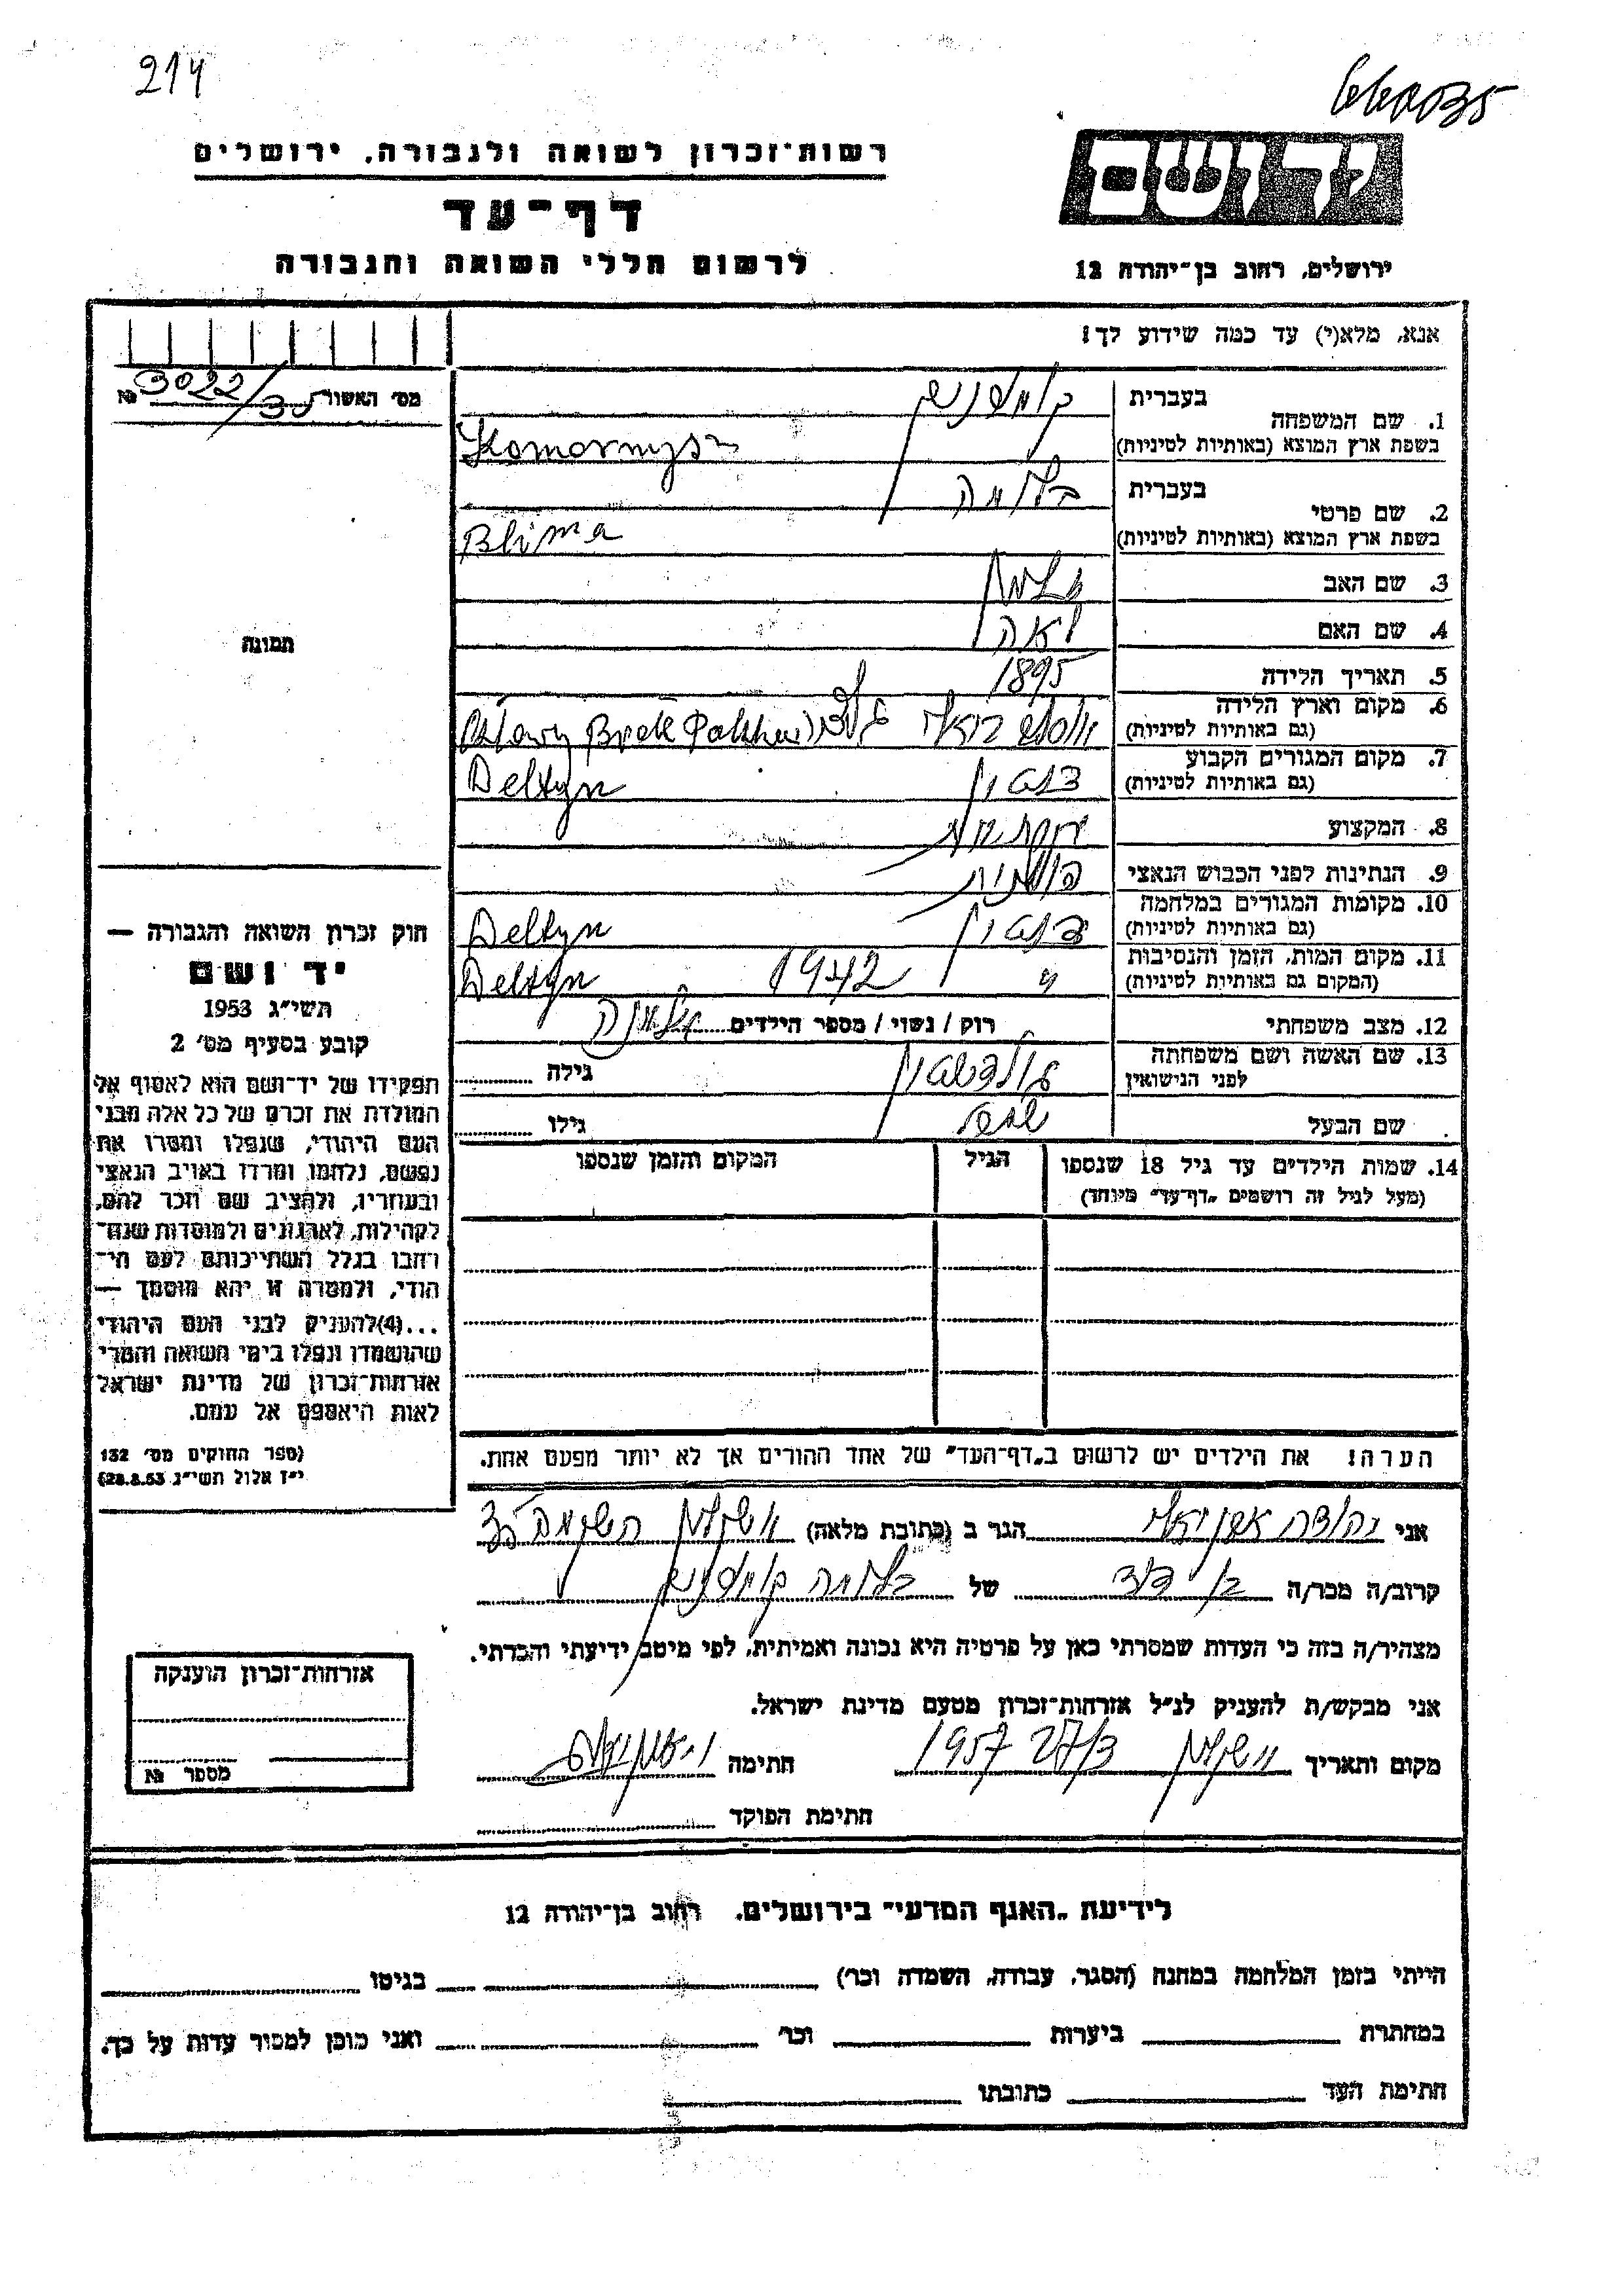 214
6680035
רשות־זכרון לשואה ולגבורה, ירושלים
ידושם
דף־עד
לרשום חללי השואה והגבורה
ירושלים, רחוב בן־יהודה 12
אנא, מלא(י) עד כמה שידוע לך!
מס׳ האשור № 3022/35
1. שם המשפחה
בעברית
בשפת ארץ המוצא (באותיות לטיניות)
2. שם פרטי
בעברית בלימה
בשפת ארץ המוצא (באותיות לטיניות) Blima
3. שם האב
4. שם האם לאה
5. תאריך הלידה 1895
6. מקום וארץ הלידה
(גם באותיות לטיניות)
7. מקום המגורים הקבוע
(גם באותיות לטיניות) Deltyn
8. המקצוע
9. הנתינות לפני הכבוש הנאצי פולנית
10. מקומות המגורים במלחמה
(גם באותיות לטיניות) Deltyn
11. מקום המות, הזמן והנסיבות
(המקום גם באותיות לטיניות) " 1942 Deltyn
12. מצב משפחתי רוק / נשוי / מספר הילדים אלמנה
13. שם האשה ושם משפחתה
לפני הנישואין גולדשטיין גילה
שם הבעל גילו
14. שמות הילדים עד גיל 18 שנספו הגיל המקום והזמן שנספו
(מעל לגיל זה רושמים „דף־עד״ מיוחד)
הערה! את הילדים יש לרשום ב„דף־העד״ של אחד ההורים אך לא יותר מפעם אחת.
תמונה
חוק זכרון השואה והגבורה —
יד ושם
תשי״ג 1953
קובע בסעיף מס׳ 2
תפקידו של יד־ושם הוא לאסוף אל
המולדת את זכרם של כל אלה מבני
העם היהודי, שנפלו ומסרו את
נפשם, נלחמו ומרדו באויב הנאצי
ובעוזריו, ולהציב שם וזכר להם,
לקהילות, לארגונים ולמוסדות שנח־
רבו בגלל השתייכותם לעם הי־
הודי, ולמטרה זו יהא מוסמך —
...(4)להעניק לבני העם היהודי
שהושמדו ונפלו בימי השואה והמרי
אזרחות־זכרון של מדינת ישראל
לאות היאספם אל עמם.
(ספר החוקים מס׳ 132
י״ז אלול תשי״ג 28.8.53)
אני יהודה הגר ב (כתובת מלאה) ירושלים
קרוב/ה מכר/ה בן דוד של בלימה
מצהיר/ה בזה כי העדות שמסרתי כאן על פרטיה היא נכונה ואמיתית, לפי מיטב ידיעתי והכרתי.
אני מבקש/ת להעניק לנ״ל אזרחות־זכרון מטעם מדינת ישראל.
מקום ותאריך ירושלים 1957 חתימה
חתימת הפוקד
אזרחות־זכרון הוענקה
מספר №
לידיעת „האגף המדעי״ בירושלים, רחוב בן־יהודה 12
הייתי בזמן המלחמה במחנה (הסגר, עבודה, השמדה וכו׳) בגיטו
במחתרת ביערות וכו׳ ואני מוכן למסור עדות על כך.
חתימת העד כתובתו